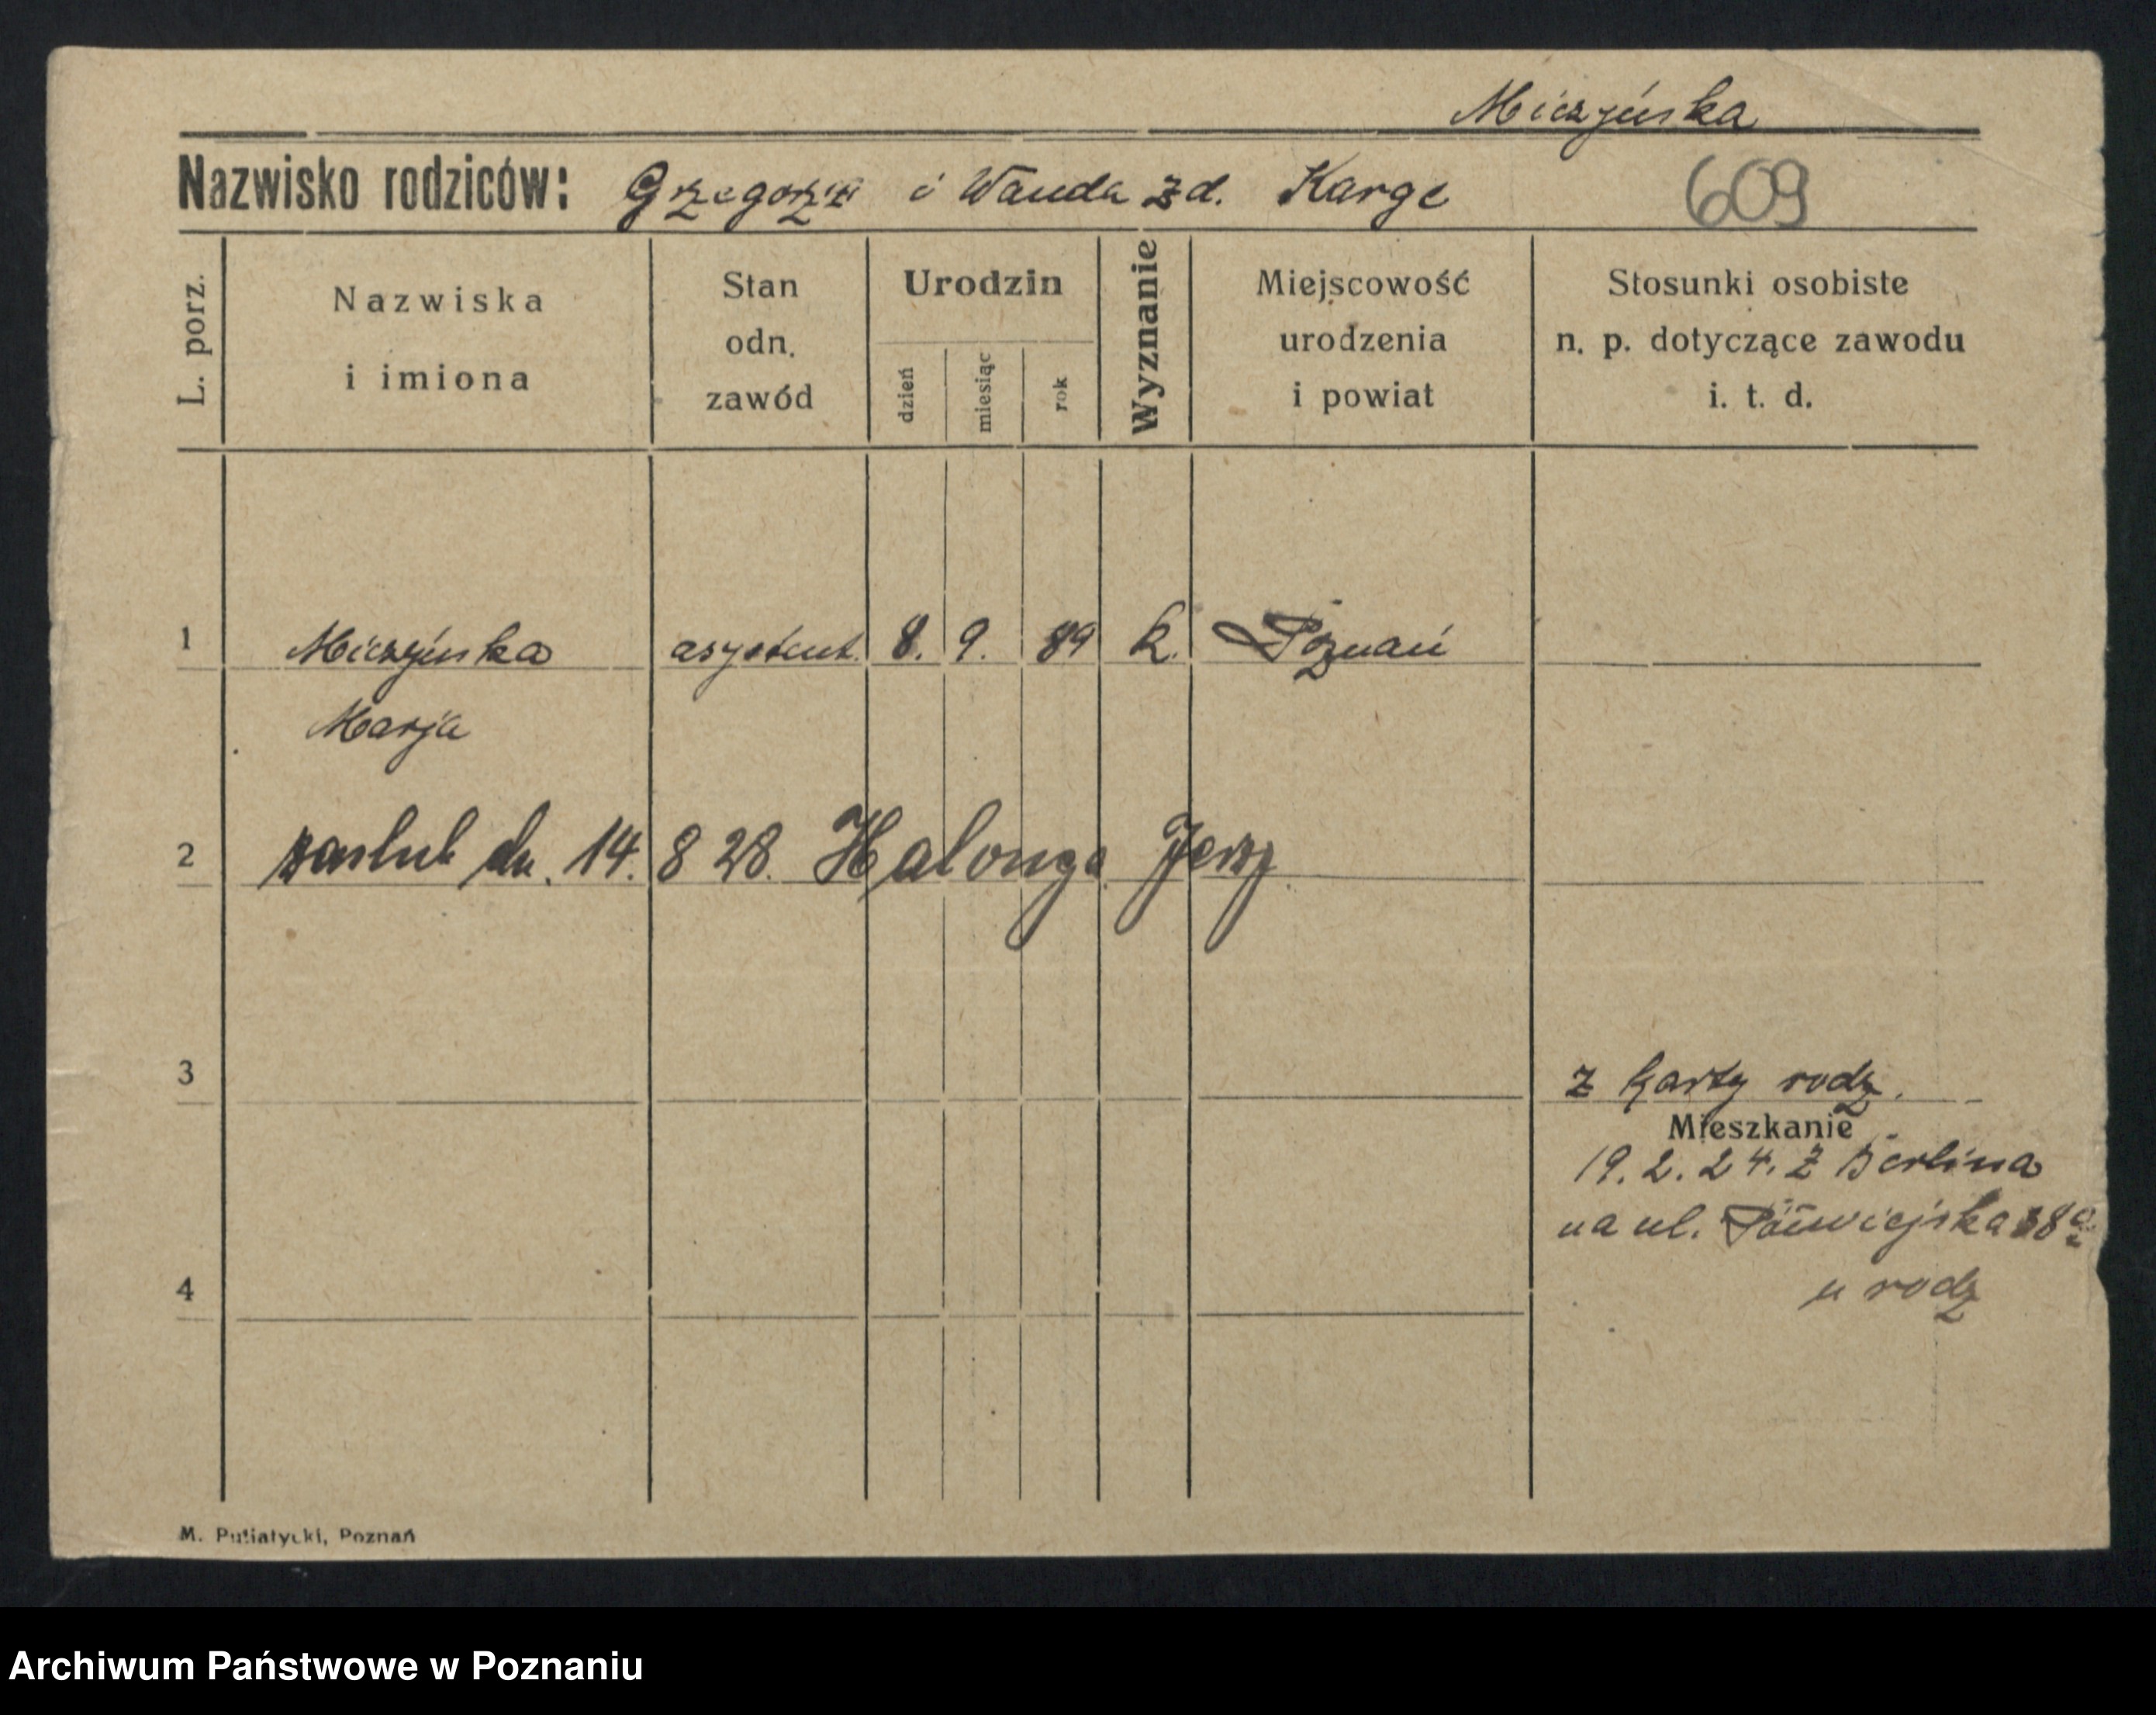 Miczyńska
Nazwisko rodziców: Grzegorz i Wanda zd. Karge
609
L. porz.
Nazwiska
i imiona
Stan
odn.
zawód
Urodzin
dzień
miesiąc
rok
Wyznanie
Miejscowość
urodzenia
i powiat
Stosunki osobiste
n. p. dotyczące zawodu
i. t. d.
1 Miczyńska asystent. 8. 9. 89 k. Poznań
Marja
2 zaslub dn. 14. 8 28. Halonga Jerzy
3 z karty rodz.
Mieszkanie
19. 2. 24. z Berlina
na ul. Półwiejska 38
4 u rodz
M. Putiatycki, Poznań
Archiwum Państwowe w Poznaniu